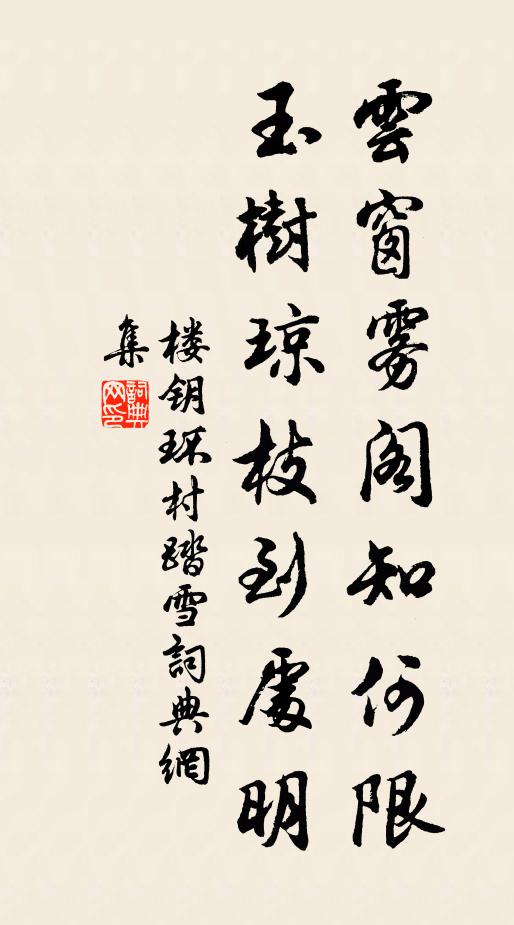 雲窗雾阁知何限
玉樹琼枝到處明
楼钥环村踏雪詞典網
集
詞典
网印